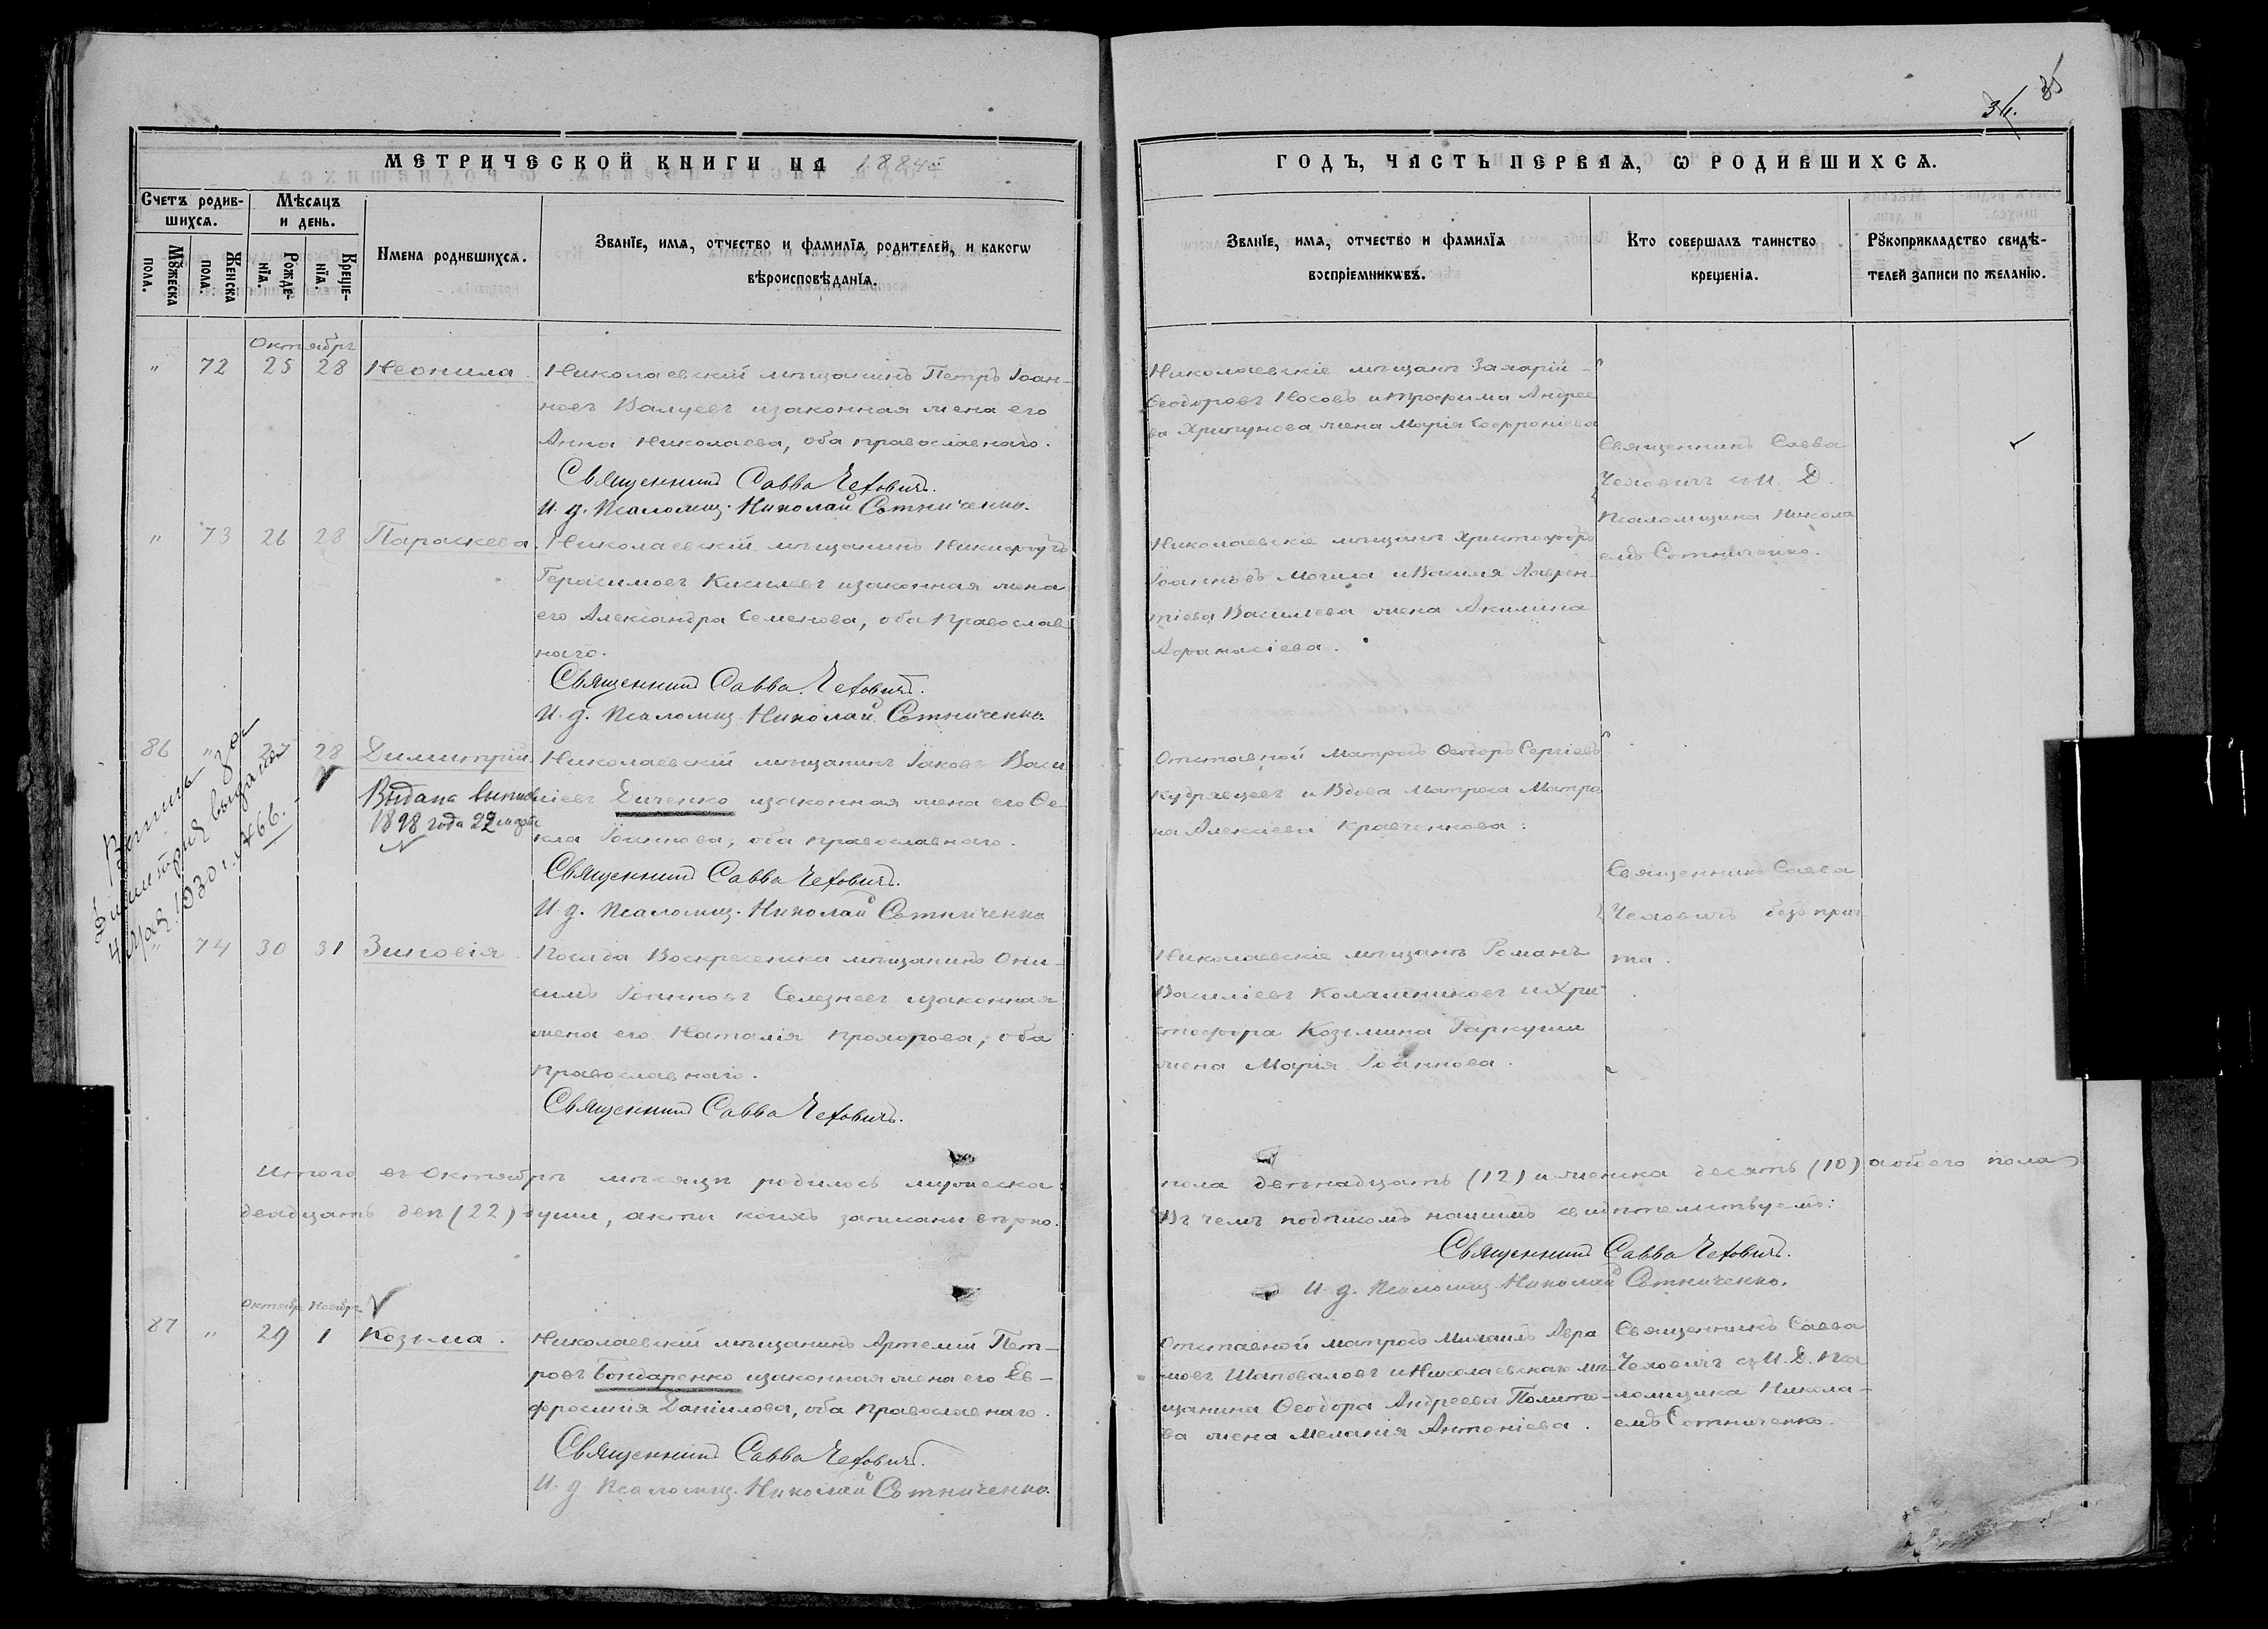 34.
35
МЕТРИЧЕСКОЙ КНИГИ НА 1884й
ГОДЪ, ЧАСТЬ ПЕРВАѦ, Ѡ РОДИВШИХСѦ.
Счетъ родив-
шихсѧ.
Мѣсѧцъ
и день.
Мꙋжеска
пола.
Женска
пола.
Рожде-
нїѧ.
Креще-
нїѧ.
Имена родившихсѧ.
Званїе, имѧ, отчество и фамилїѧ родителей, и какогѡ
вѣроисповѣданїѧ.
Званїе, имѧ, отчество и фамилїѧ
воспрїемникѡвъ.
Кто совершалъ таинство
крещенїѧ.
Рꙋкоприкладство свидѣ-
телей записи по желанїю.
Октябрь
" 72 25 28 Неонила.
Николаевскій мѣщанинъ Петръ Іоан-
новъ Валуевъ и законная жена его
Анна Николаева, оба православнаго.
Священникъ Савва Чеховичъ.
И. д. Псаломщ. Николай Сотниченко.
Николаевскіе мѣщане Захарій
Ѳеодоровъ Носовъ и Трофима Андрее
ва Хрипунова жена Марія Софроніева
Священникъ Савва
Чеховичъ съ И. Д.
Псаломщика Никола
емъ Сотниченко.
" 73 26 28 Параскева.
Николаевскій мѣщанинъ Никифоръ
Герасимовъ Киселевъ и законная жена
его Александра Семенова, оба Православ
наго.
Священникъ Савва Чеховичъ.
И. д. Псаломщ. Николай Сотниченко.
Николаевскіе мѣщане Христофоръ
Іоанновъ Могила и Василія Лаврен-
тіева Василева жена Акилина
Афанасіева.
86 " 27 28 Димитрій
Николаевскій мѣщанинъ Іаковъ Васи
ліевъ Диченко и законная жена его Ѳе-
кла Іоаннова, оба православнаго.
Священникъ Савва Чеховичъ.
И. д. Псаломщ. Николай Сотниченко
Выдана выпись
1898 года 22 марта
Димитрия выдана
1930 г. №66.
Отставной Матросъ Ѳеодоръ Сергіевъ
Кудрявцевъ и Вдова Матроса Матро
на Алексіева Кравченкова:
Священникъ Савва
Чеховичъ безъ прич
та.
" 74 30 31 Зиновія.
Посада Воскресенска мѣщанинъ Они-
симъ Іоанновъ Селезневъ и законная
жена его Наталія Прохорова, оба
Православнаго.
Священникъ Савва Чеховичъ.
Николаевскіе мѣщане Романъ
Василіевъ Калашниковъ и Хри
стофора Козьмина Гаркуши
жена Марія Іоаннова.
Итого въ Октябрѣ мѣсяцѣ родилось мужеска
пола двѣнадцать (12) и женска десять (10) а обоего пола
двадцать двѣ (22) души, акты коихъ записаны вѣрно.
Въ чемъ подписомъ нашимъ свидѣтельствуемъ:
Священникъ Савва Чеховичъ.
И. д. Псаломщ. Николай Сотниченко.
Октябр. Ноябрь
87 " 29 1 Козьма.
Николаевскій мѣщанинъ Артемій Пет-
ровъ Бондаренко и законная жена его Ев-
фросинія Даніилова, оба Православнаго.
Священникъ Савва Чеховичъ.
И. д. Псаломщ. Николай Сотниченко.
Отставной матросъ Михаилъ Авра
мовъ Шаповаловъ и Николаевскаго мѣ-
щанина Ѳеодора Андреева Полито-
ва жена Меланія Антоніева.
Священникъ Савва
Чеховичъ съ И. Д. Пса
ломщика Никола-
емъ Сотниченко.